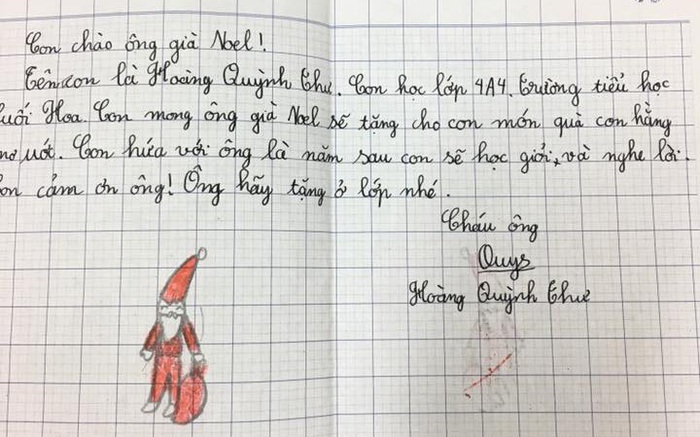 Con chào ông già Noel!
Tên con là Hoàng Quỳnh Thư. Con học lớp 4A4. trường tiểu học
Hoa. Con mong ông già Noel sẽ tặng cho con món quà con hằng
ước. Con hứa với ông là năm sau con sẽ học giỏi, và nghe lời.
cảm ơn ông! Ông hãy tặng ở lớp nhé.
Cháu ông
Quys
Hoàng Quỳnh Thư